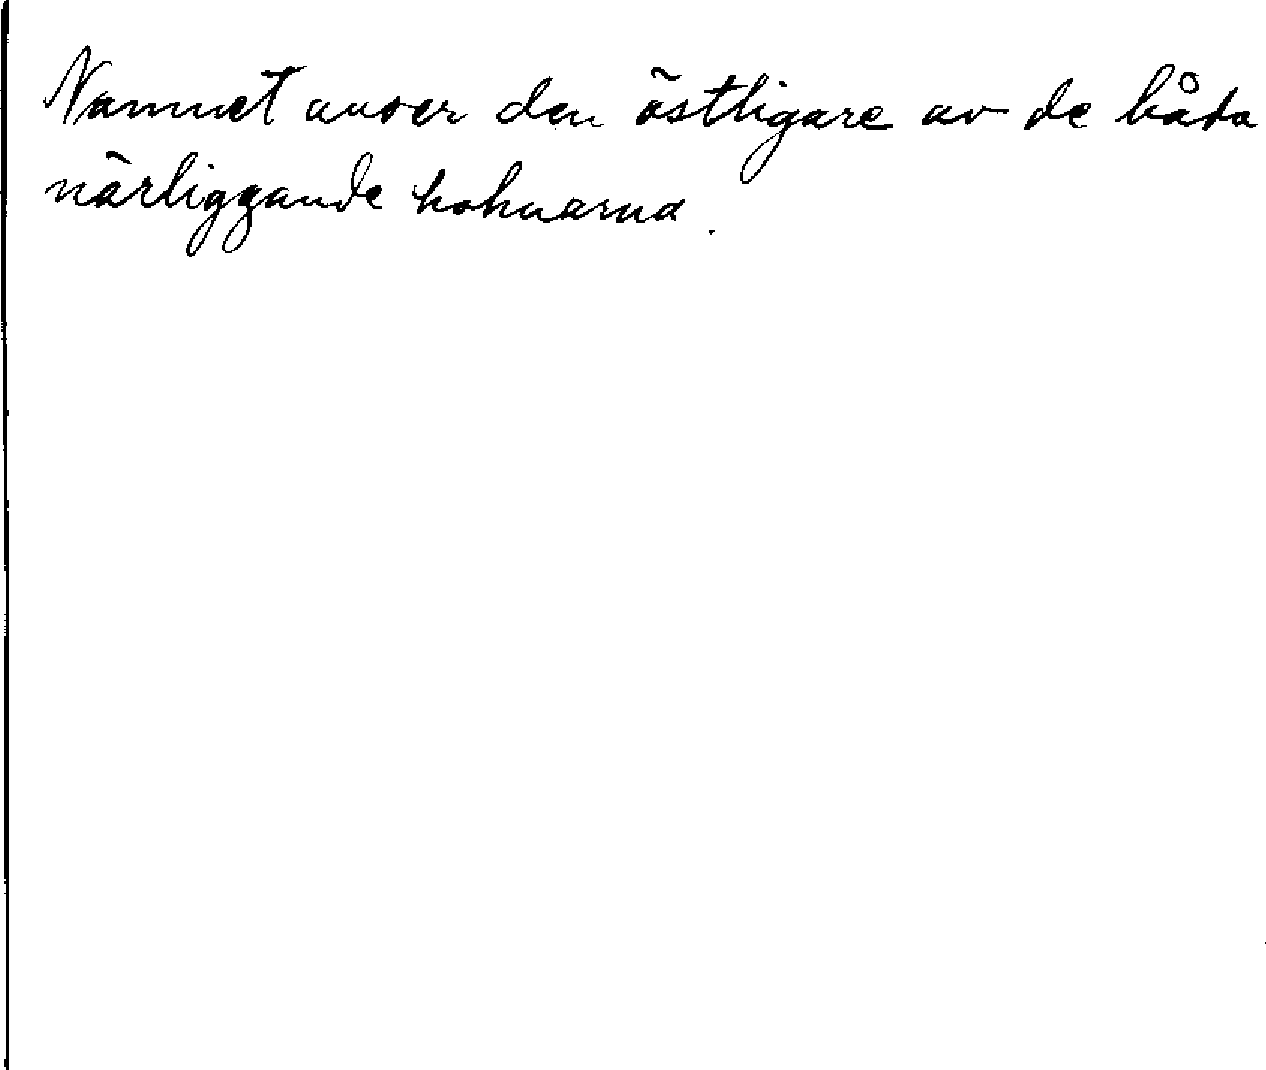 Namnet avser den östligare av de båda
närliggande holmarna.